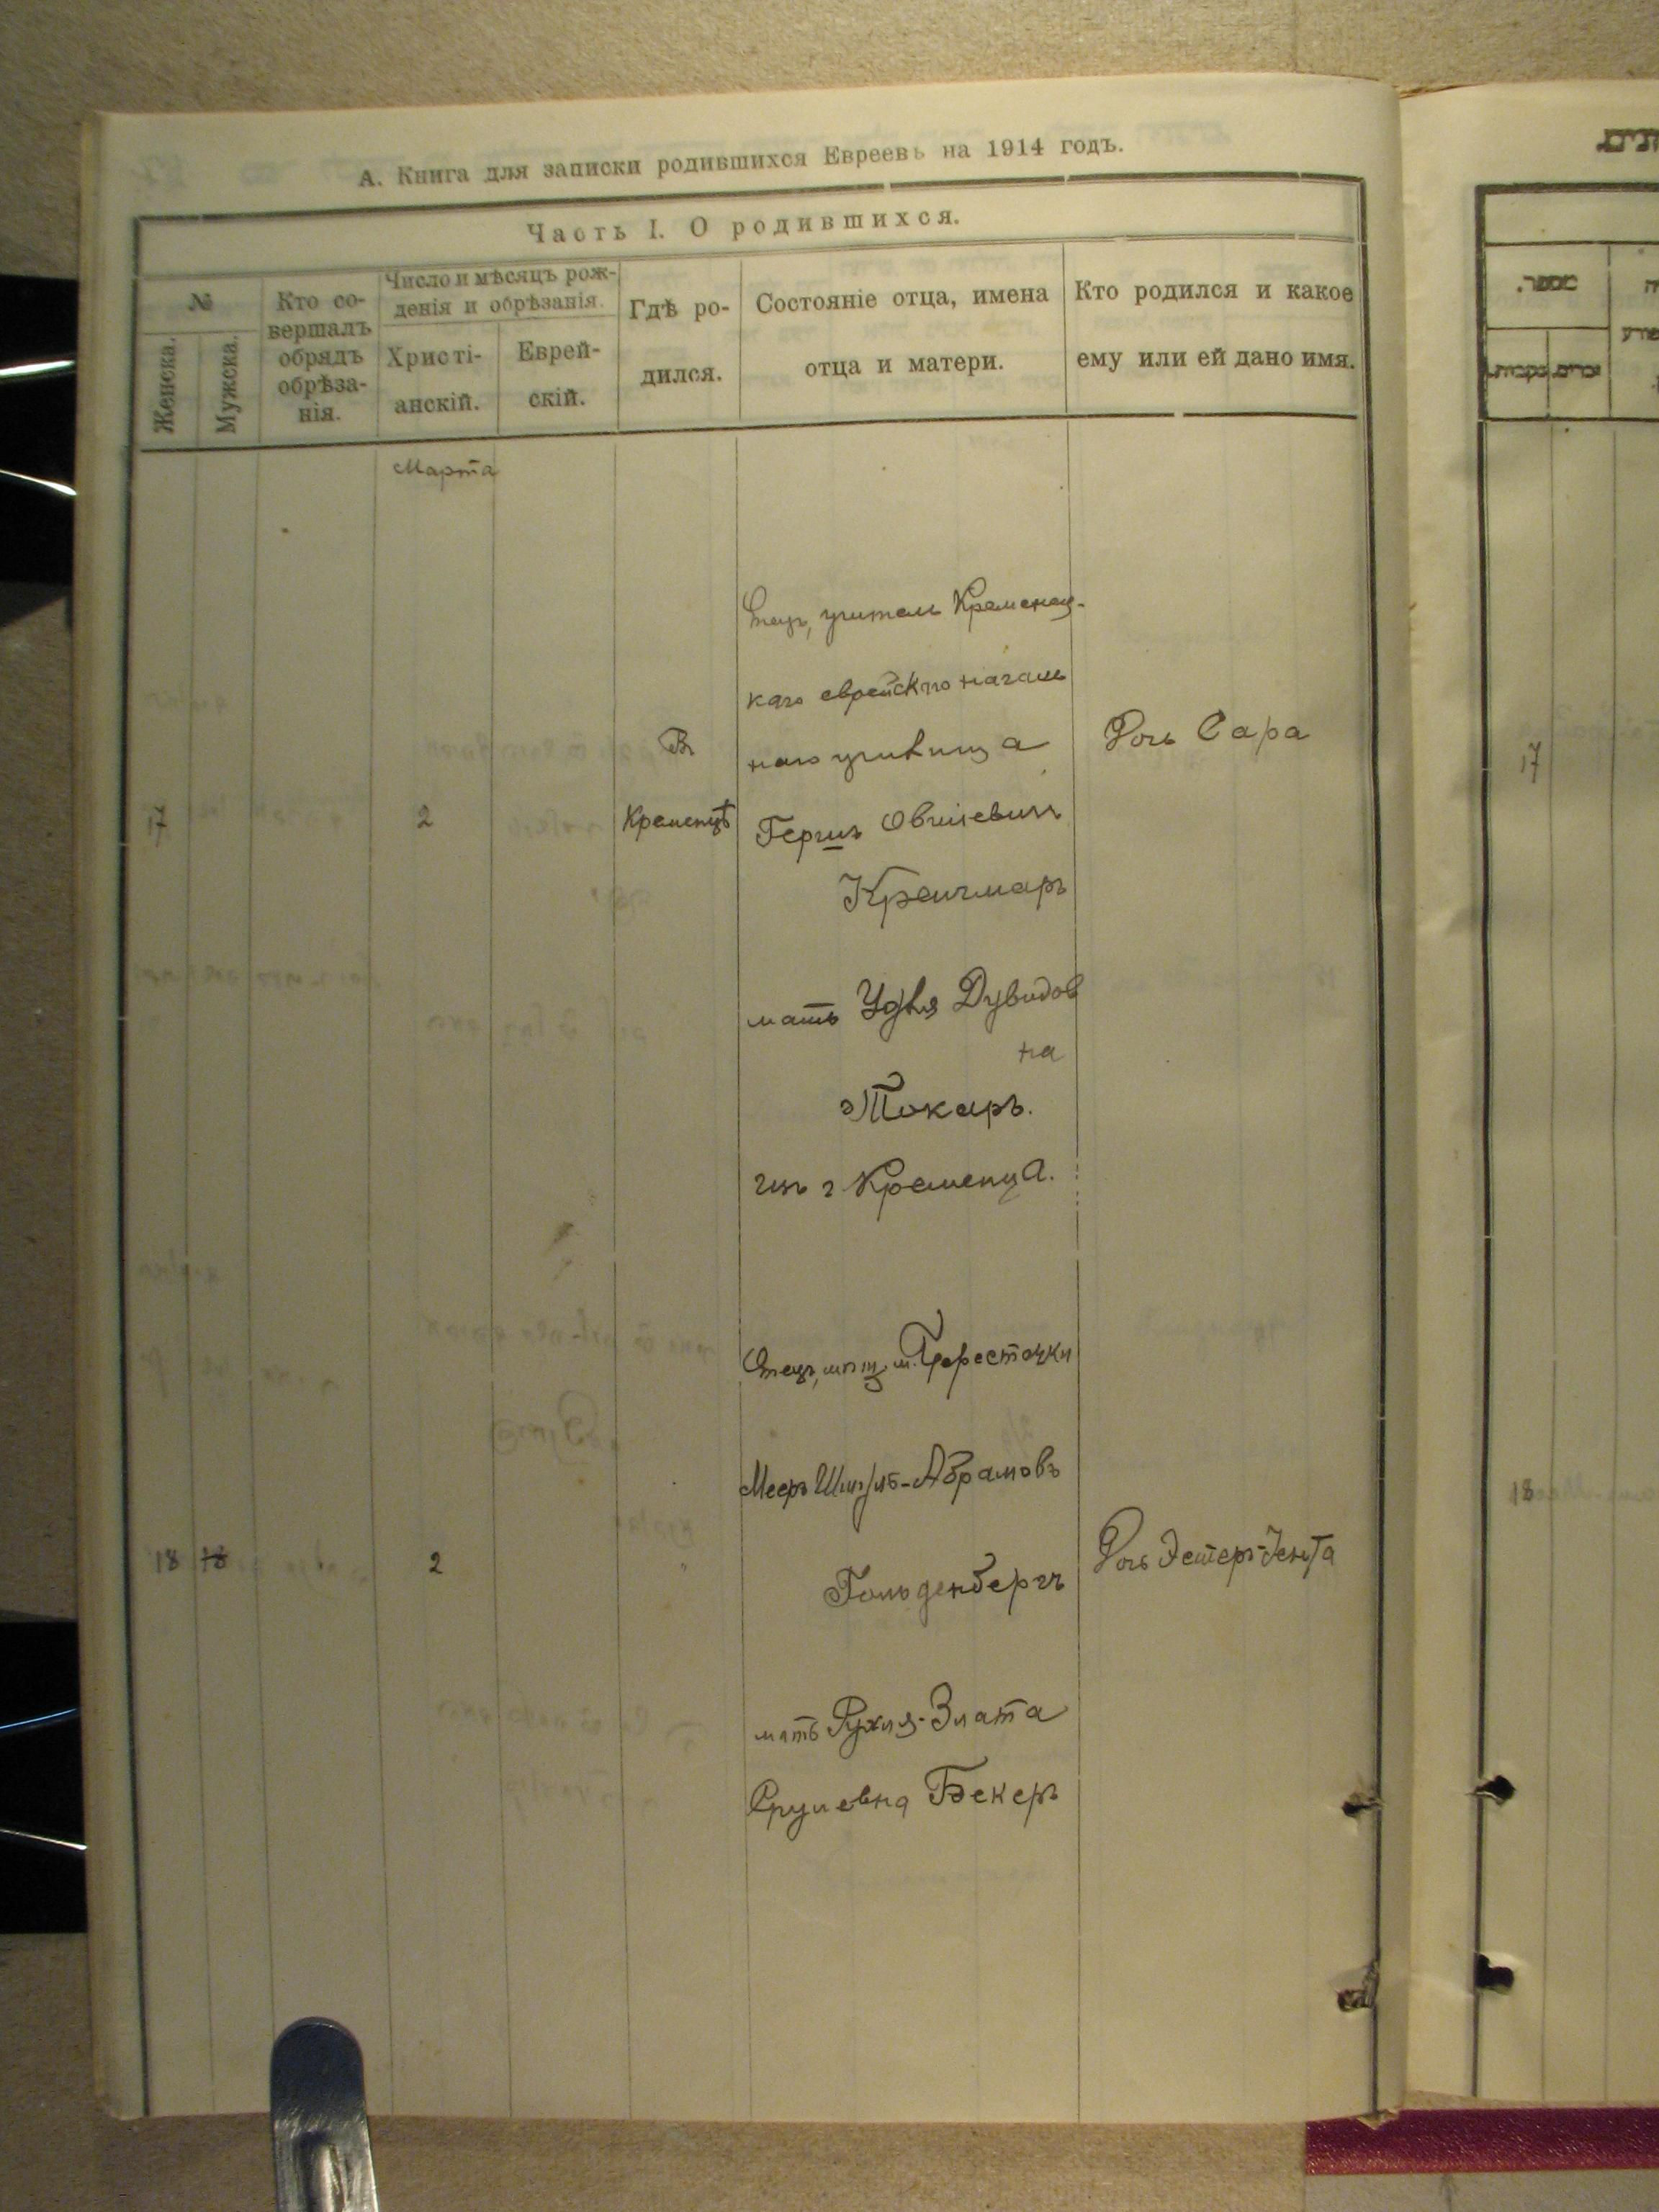 А. Книга для записки родившихся Евреевъ на 1914 годъ.
Часть I. О родившихся.
№
Женска.
Мужска.
Кто со-
вершалъ
обрядъ
обрѣза-
нія.
Число и мѣсяцъ рож-
денія и обрѣзанія.
Христі-
анскій.
Еврей-
скій.
Гдѣ ро-
дился.
Состояніе отца, имена
отца и матери.
Кто родился и какое
ему или ей дано имя.
Марта
17
2
Въ
Кременцѣ
Отецъ, учитель Кременец-
каго еврейскаго началь
наго училища
Гершъ
Кречмаръ
мать Удля Дувидов
на
Токаръ.
г Кременца.
Дочь Сара
18 18
2
"
Отецъ, мѣщ. м. Берестечки
Мееръ Абрамовъ
Гольденбергъ
мать Рухля-Злата
Срулевна Бекеръ
Дочь Эстеръ-Јента
מספר.
זכרים
נקבות
17
18